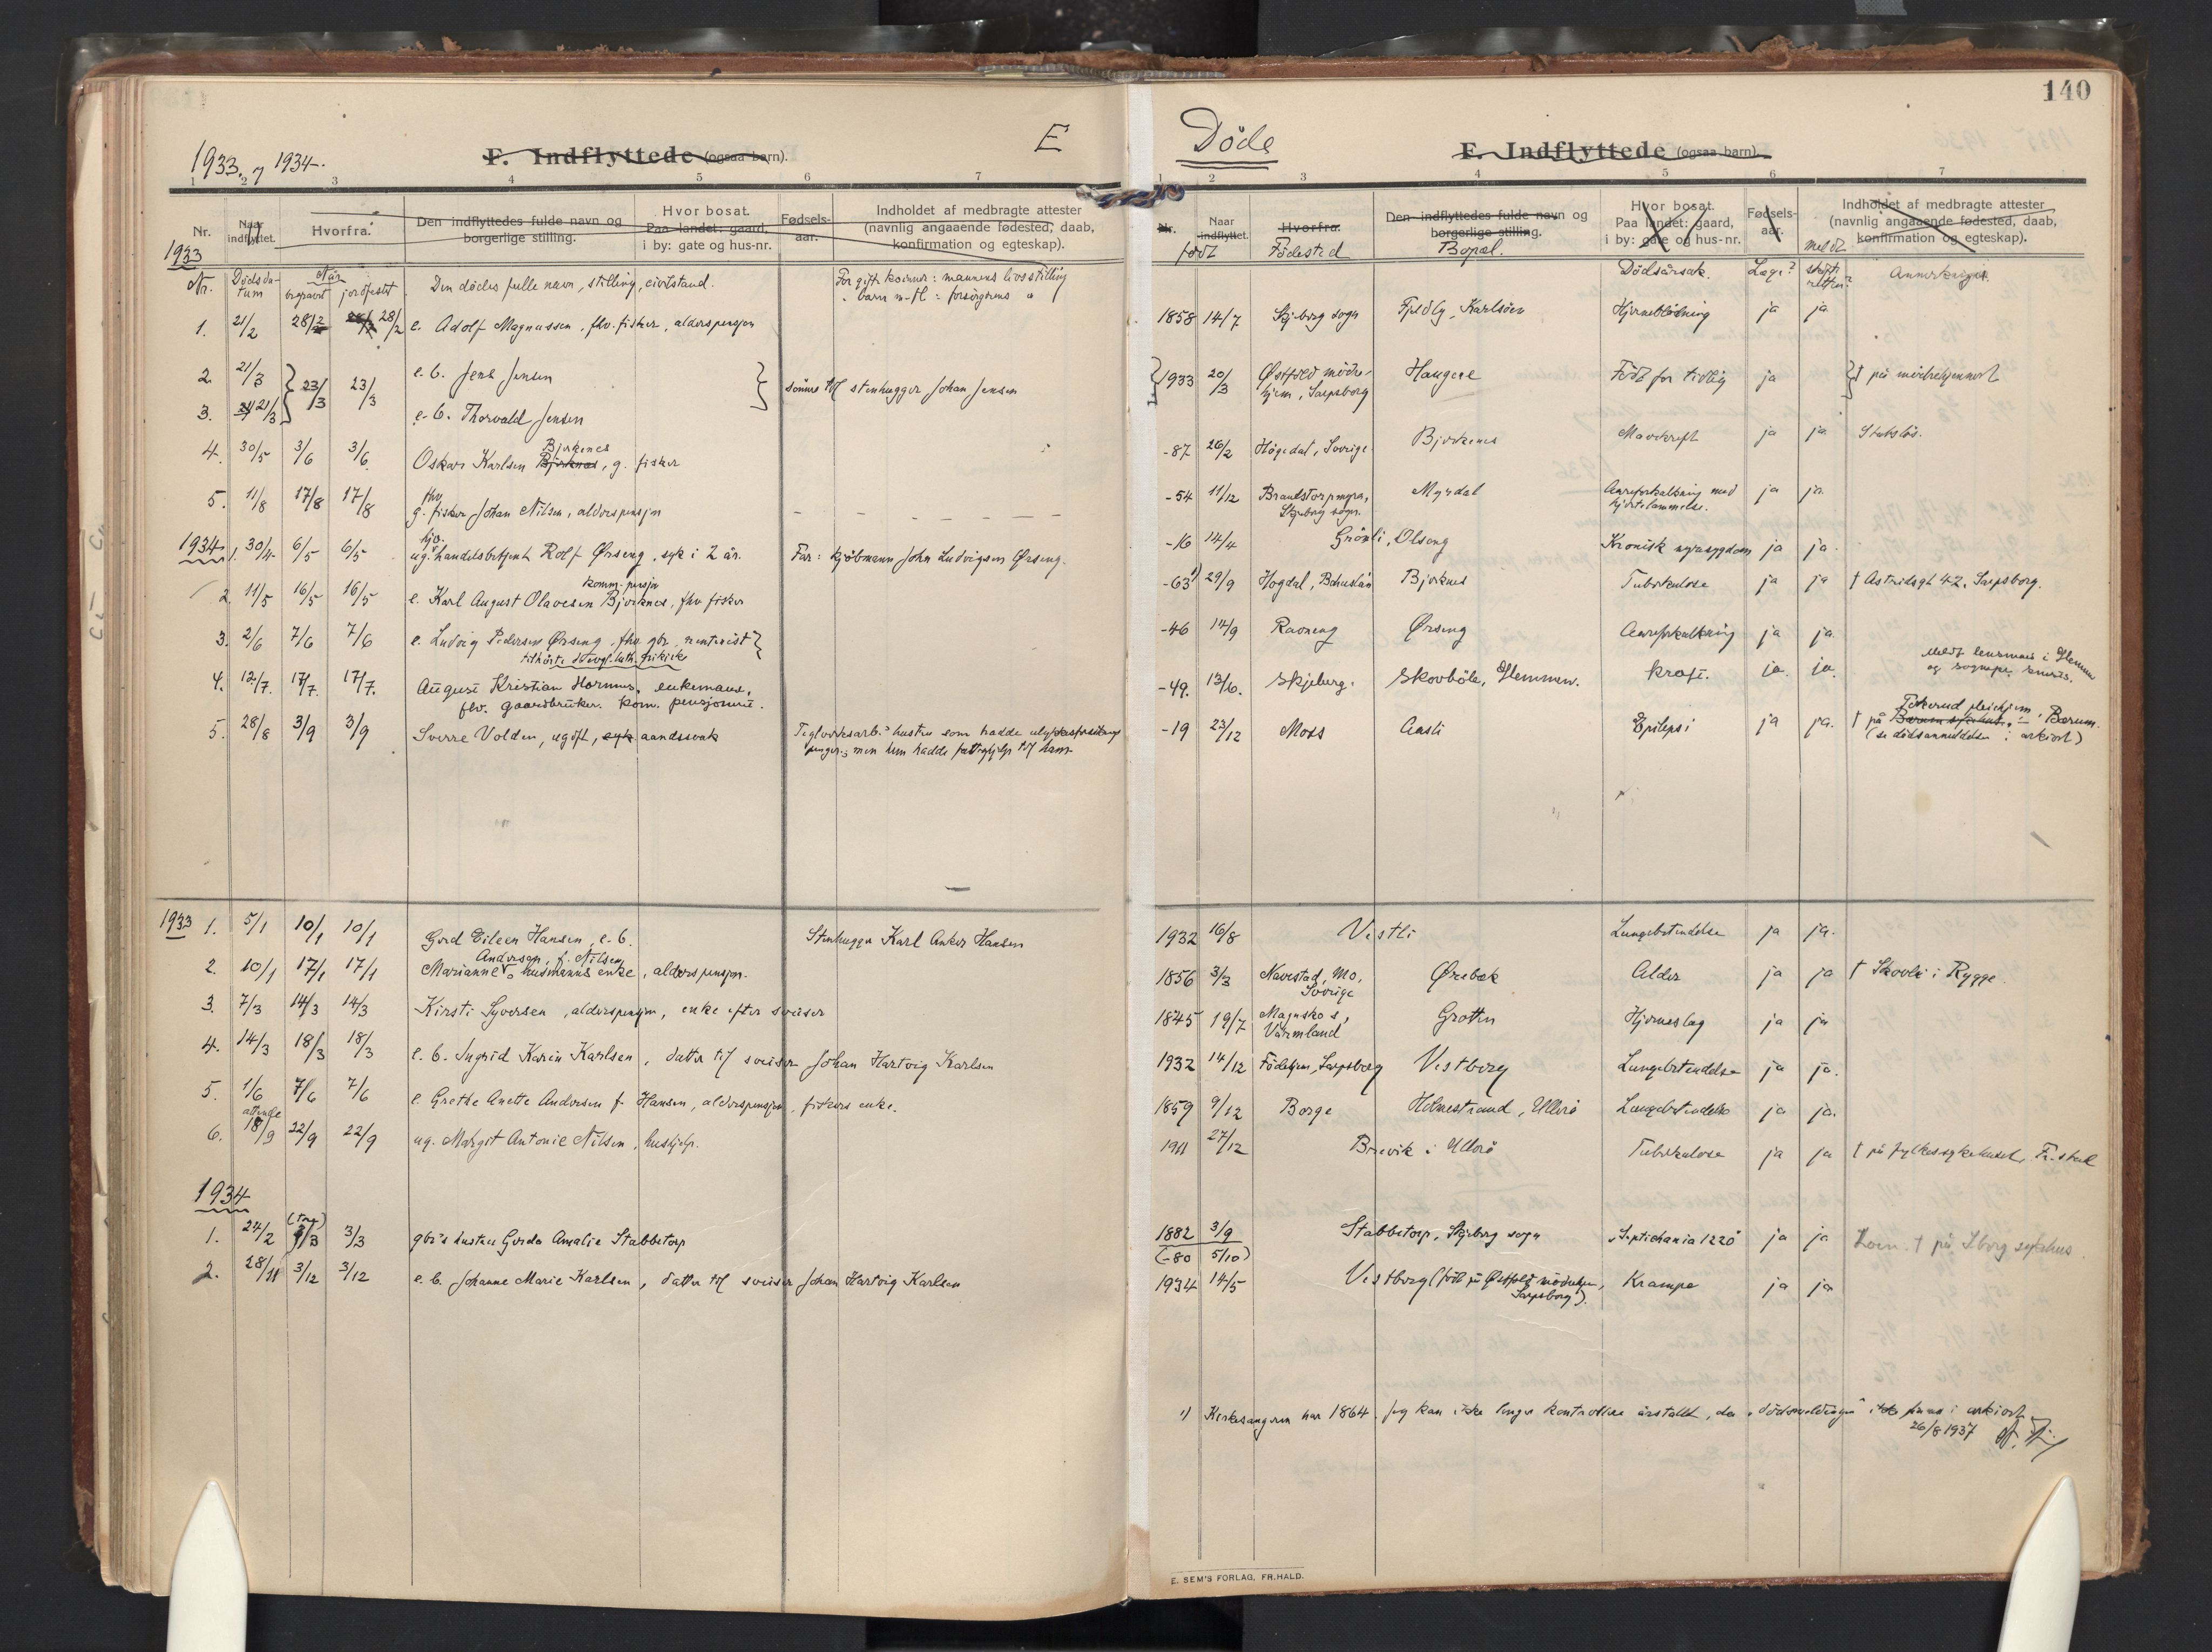 140
1933. 7 1934.
F. Indflyttede (ogsaa barn).
E
1 2 3 4 5 6 7
Nr. Naar indflyttet. Hvorfra. Den indflyttedes fulde navn og borgerlige stilling. Hvor bosat. Paa landet: gaard, i by: gate og hus-nr. Fødsels-aar. Indholdet af medbragte attester (navnlig angaaende fødested, daab, konfirmation og egteskap).
1933
Nr. Dødsdatum Når begravet jordfestet Den dødes fulle navn, stilling, civilstand. For gift kvinne: mannens livsstilling
" barn : forsørgerens "
1. 21/2 28/2 28/2 e. Adolf Magnussen, fhv. fisker, alderspensjon
2. 21/3 23/3 23/3 e.b. Jens Jensen sønner til stenhugger Johan Jensen
3. 21/3 e.b. Thorvald Jensen
4. 30/5 3/6 3/6 Oskar Karlsen Bjørknes Bjerkenes, g. fisker
5. 11/8 17/8 17/8 g. fhv. fisker Johan Nilsen, alderspensjon
1934 1. 30/4 6/5 6/5 ug. handelsbetjent Rolf Ørseng, syk i 2 år. Far: kjøbmann John Ludvigsen Ørseng.
2. 11/5 16/5 16/5 e. Karl August Olavesen Bjerknes, fhv fisker komm. pensjon
3. 2/6 7/6 7/6 e. Ludvig Pedersen Ørseng, fhv. gbr., rentenist
tilhørte d. evgl. luth. frikirke
4. 12/7. 17/7. 17/7. August Kristian Hornnes, enkemann,
flv. gaardbruker. kom. pensjonist.
5. 28/8 3/9 3/9 Sverre Volden, ugift, syk aandssvak Teglverksarb.s hustru som hadde
penger; men hun hadde fattighjelp til ham
1933 1. 5/1 10/1 10/1 Gerd Eileen Hansen, e.b. Stenhugger Karl Anker Hansen
2. 10/1 17/1 17/1 Marianne Andersen, f. Nilsen husmanns enke, alderspensjon.
3. 7/3 14/3 14/3 Kirsti Syversen, alderspensjon, enke efter sveiser
4. 14/3 18/3 18/3 e.b. Ingrid Karin Karlsen, datter til sveiser Johan Hartvig Karlsen
5. 1/6 7/6 7/6 e. Grethe Anette Andersen f. Hansen, alderspensjon, fiskers enke.
6. attende 18/9 22/9 22/9 ug. Margit Antonie Nilsen, hushjelp.
1934
1. 24/2 3/3 3/3 gbr's hustru Gerda Amalie Stabbetorp
2. 28/11 3/12 3/12 e.b. Johanne Marie Karlsen, datter til sveiser Johan Hartvig Karlsen
Døde
F. Indflyttede (ogsaa barn).
1 2 3 4 5 6 7
Nr. Naar indflyttet. Hvorfra. Den indflyttedes fulde navn og borgerlige stilling. Hvor bosat. Paa landet: gaard, i by: gate og hus-nr. Fødsels-aar. Indholdet af medbragte attester (navnlig angaaende fødested, daab, konfirmation og egteskap).
født Fødested Bopæl. Dødsårsak. Læge? meldt skifteretten? Anmerkninger.
1858 14/7 Skjeberg sogn Karlsøen Hjerneblødning ja ja
1933 20/3 Østfold mødrehjem, Sarpsborg Haugene Født for tidlig ja † på mødrehjemmet
-87 26/2 Högedal, Sverige Bjerkenes Mavekreft ja ja Statsløs.
-54 11/12 Brandstorpmyra, Skjeberg sogn. Myrdal Åreforkalkning med hjertelammelse. ja ja.
-16 14/4 Grönli, Olseng Kronisk nyresygdom ja ja.
-63 1) 29/9 Hogdal, Bohuslän Bjerknes Tuberkulose ja ja † Astridsgt 42, Sarpsborg.
-46 14/9 Raaneng Ørseng Aareforkalkning ja ja.
-49. 13/6. Skjeberg. Skovbøle, Glemmen. Kræft. ja. ja. Meldt lensmann i Glemmen
og sognepr. smsts.
-19 23/12 Moss Aasli Epilepsi ja ja. † på Bærum sykehus. Tokerud pleiehjem i Bærum.
(se dødsanmeldelse i arkivet)
1932 16/8 Vestli Lungebetendelse ja ja.
1856 3/3 Navestad, Mo, Sverige Ørebek Alder ja ja † Skovli i Rygge.
1845 19/7 Magnskog, Värmland Grotten Hjerneslag ja ja
1932 14/12 Fødehjem, Sarpsborg Vestberg Lungebetendelse ja ja.
1859 9/12 Borge Holmestrand, Ullerø Lungebetendelse ja ja.
1911 27/12 Brevik i Ullerø Tuberkulose ja ja † på fylkessykehuset, Fr.stad
1882 3/9 Stabbetorp, Skjeberg sogn "Septichamia 1220" ja ja † på S.borg sykehus.
(-80 5/10)
1934 14/5 Vestberg (født på Østfold mødrehjem, Sarpsborg). Krampe ja ja
1) Kirkesangeren har 1864. Jeg kan ikke lenger kontrollere årstallet, da "dødsmeldingen" ikke finnes i arkivet
26/8 1937
E. SEM'S FORLAG, FR.HALD.